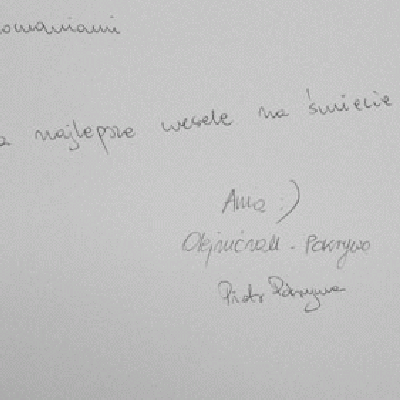 a najlepsze wesele na świecie
Ania :)
Olejniczak - Pokrywa
Piotr Pokrywa